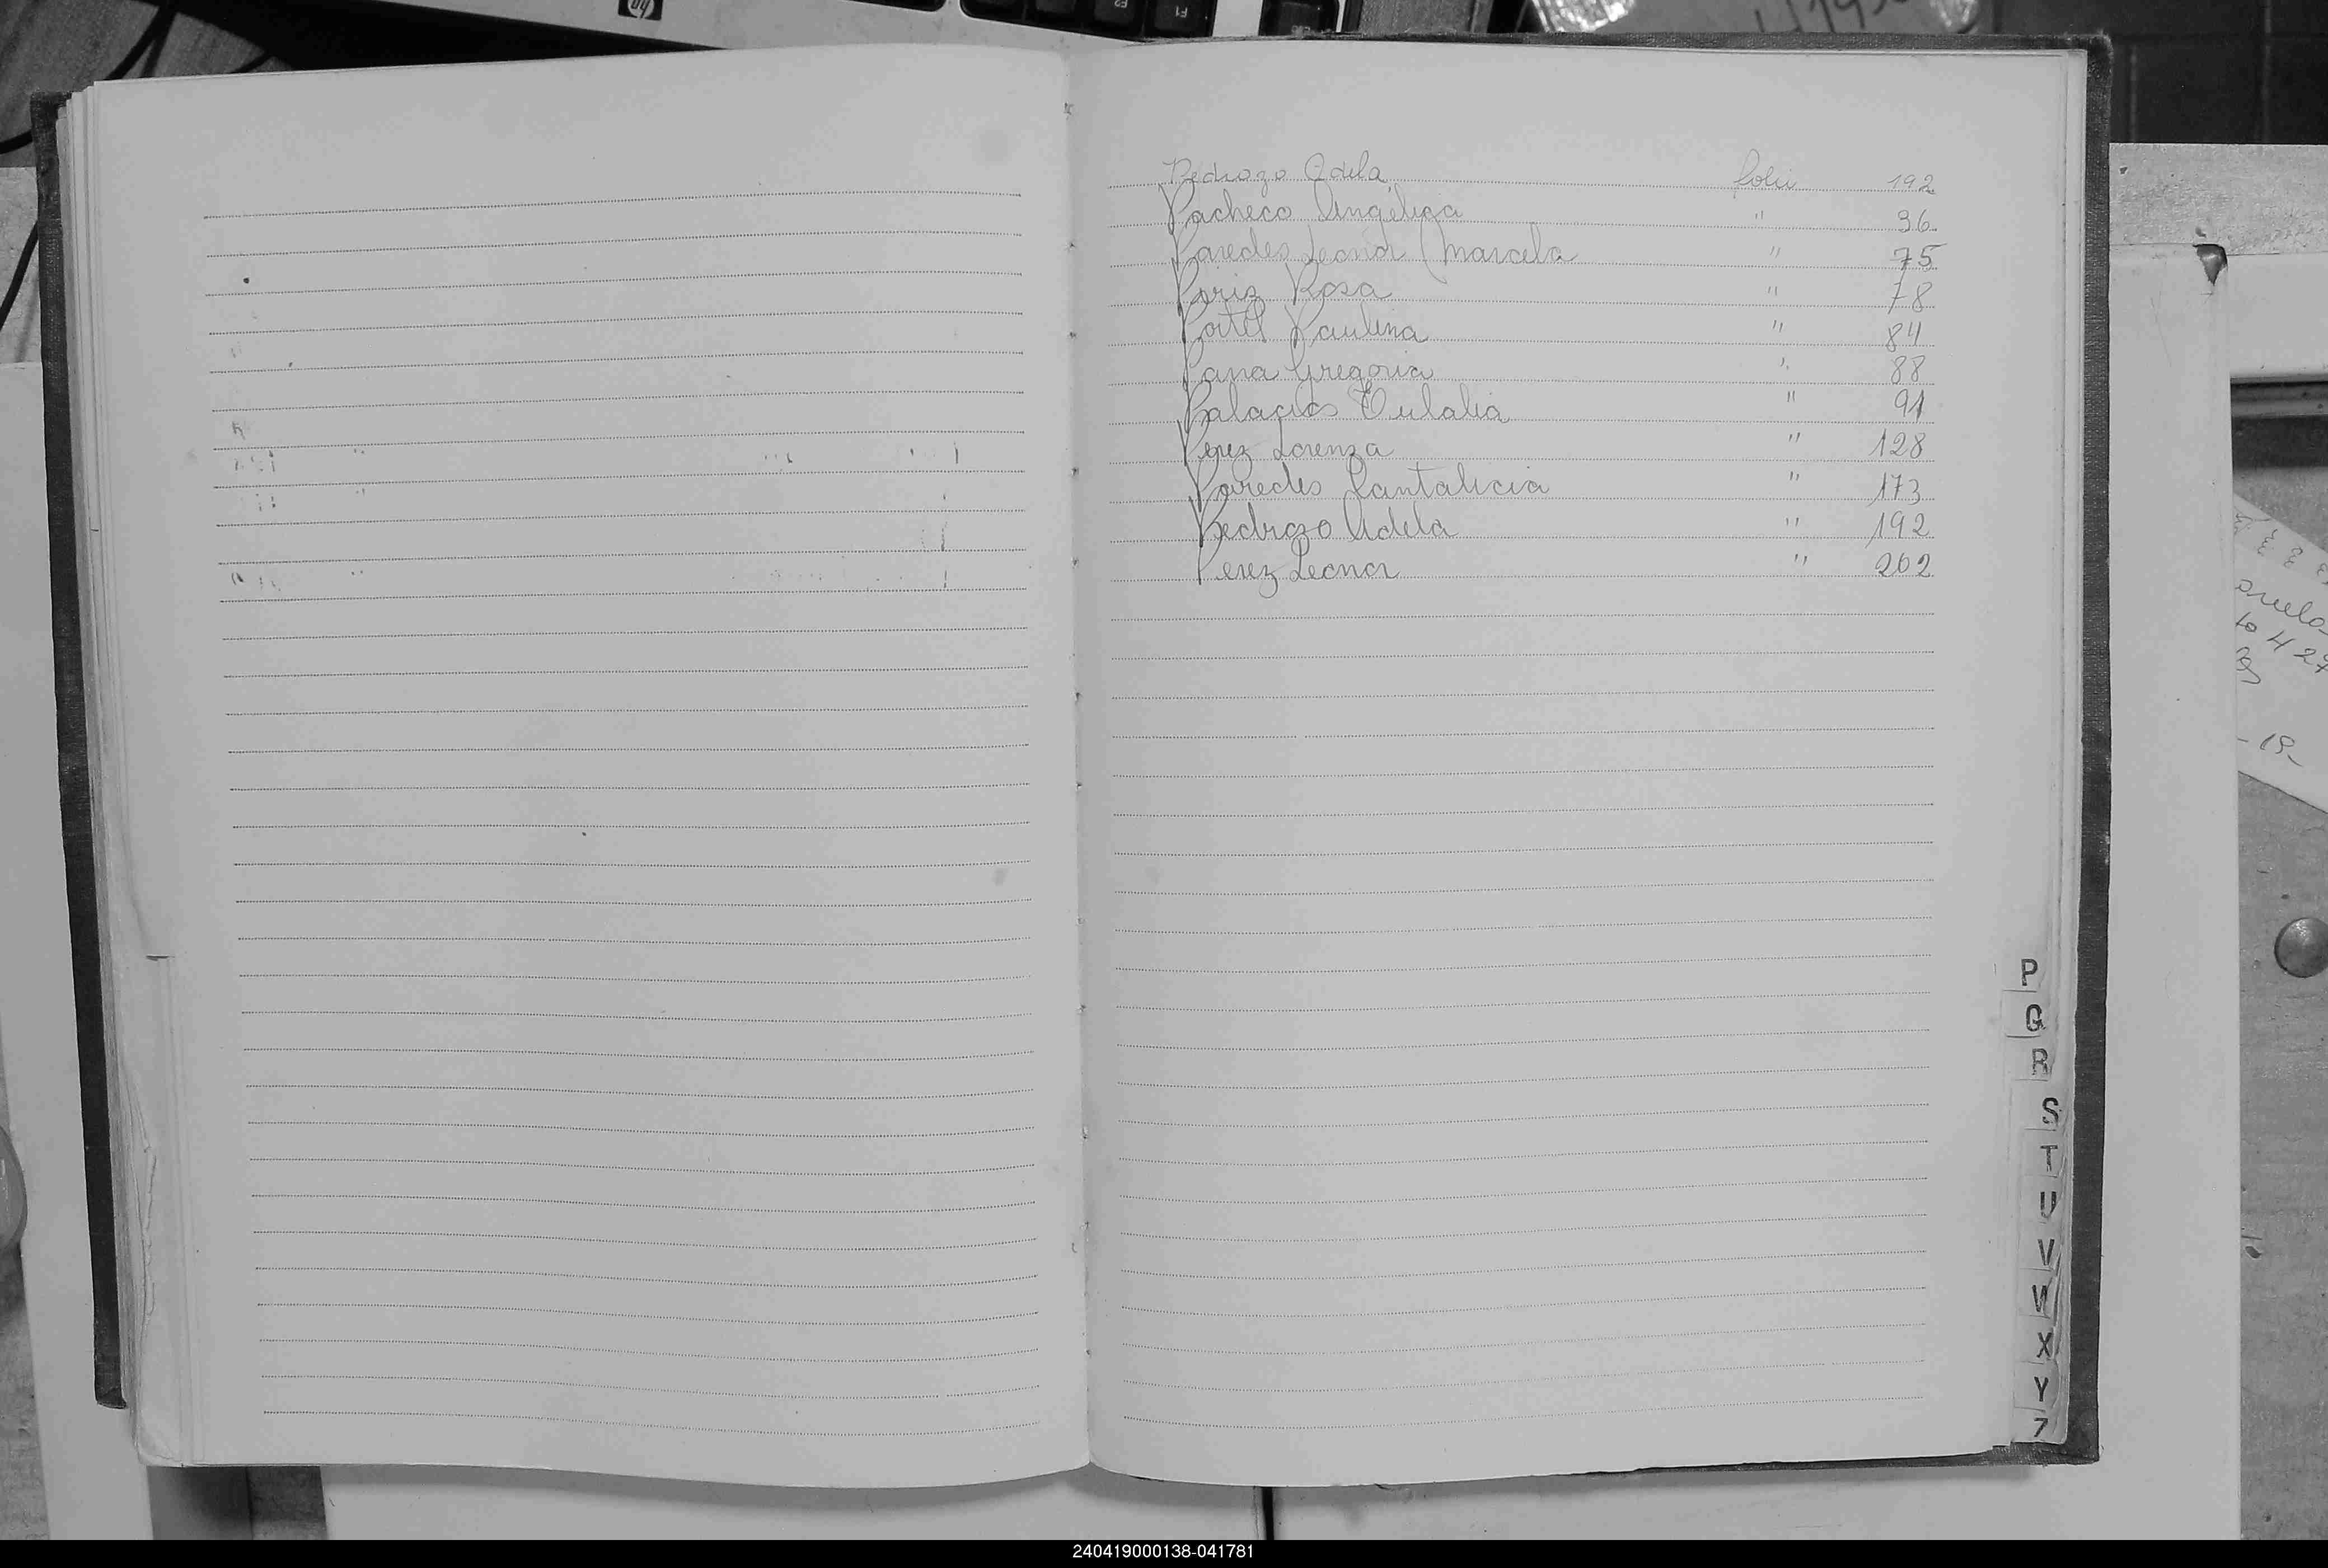 Pedrozo Adela folio 192
Pacheco Angélica " 36
Paredes Leonor (Marcela " 75
Pariz Rosa " 78
Portel Paulina " 84
Pana Gregoria " 88
Palacios Eulalia " 91
Perez Lorenza " 128
Paredes Pantalicia " 173
Pedrozo Adela " 192
Perez Leonor " 202
P
Q
R
S
T
U
V
W
X
Y
Z
240419000138-041781